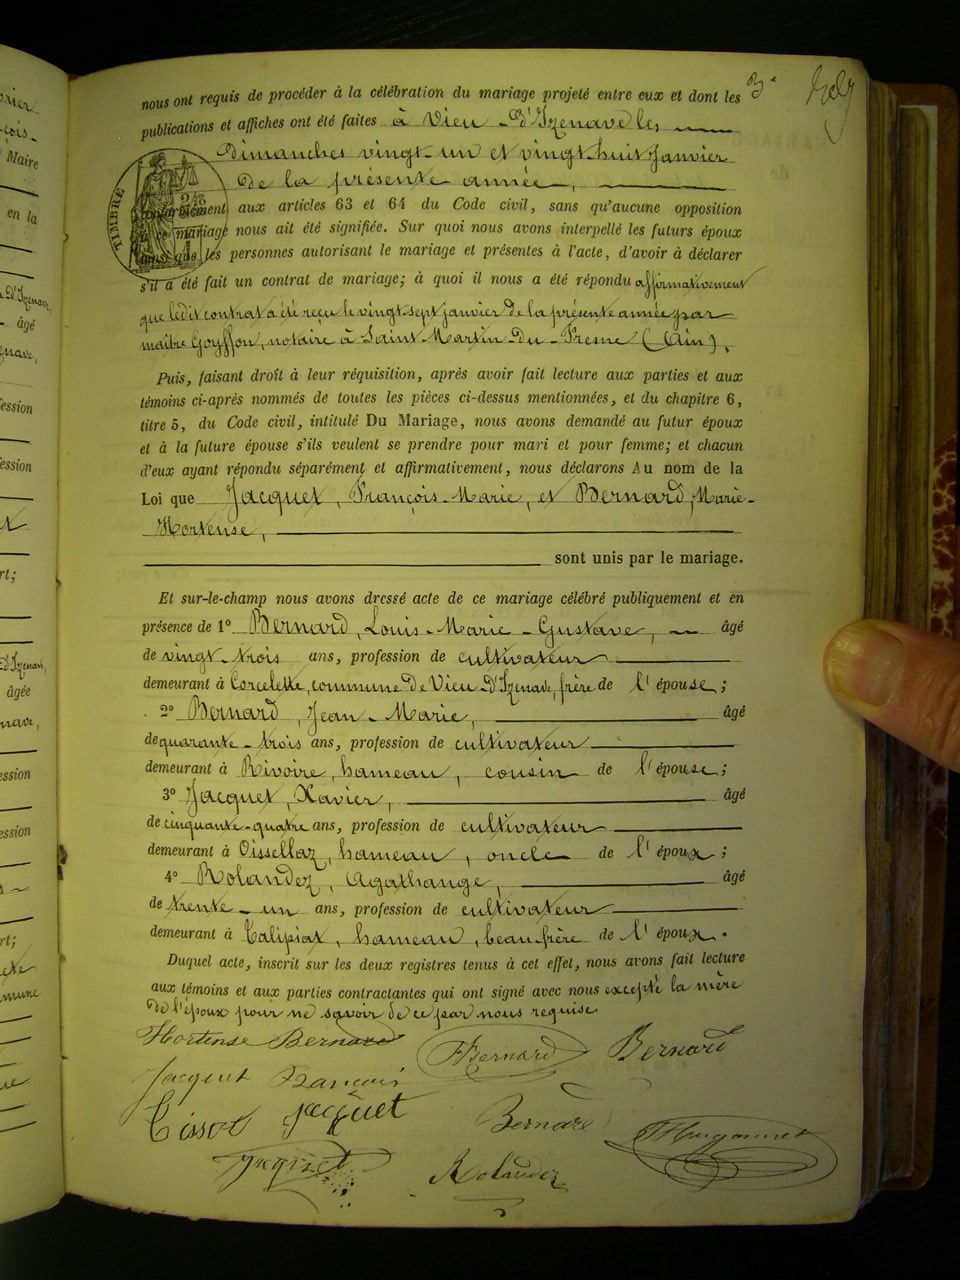 nous ont requis de procéder à la célébration du mariage projeté entre eux et dont les
publications et affiches ont été faites à Vieu-d'Izenave les
Dimanches vingt-un et vingt-huit Janvier
de la présente année,
TIMBRE
conformément aux articles 63 et 64 du Code civil, sans qu'aucune opposition
à ce mariage nous ait été signifiée. Sur quoi nous avons interpellé les futurs époux
ainsi que les personnes autorisant le mariage et présentes à l'acte, d'avoir à déclarer
s'il a été fait un contrat de mariage; à quoi il nous a été répondu affirmativement
que ledit contrat a été reçu le vingt-sept janvier de la présente année par
maître Goyffon, notaire à Saint-Martin-du-Fresne (Ain),
Puis, faisant droit à leur réquisition, après avoir fait lecture aux parties et aux
témoins ci-après nommés de toutes les pièces ci-dessus mentionnées, et du chapitre 6,
titre 5, du Code civil, intitulé Du Mariage, nous avons demandé au futur époux
et à la future épouse s'ils veulent se prendre pour mari et pour femme; et chacun
d'eux ayant répondu séparément et affirmativement, nous déclarons Au nom de la
Loi que Jacquet, François-Marie, et Bernard, Marie-
Hortense,
sont unis par le mariage.
Et sur-le-champ nous avons dressé acte de ce mariage célébré publiquement et en
présence de 1° Bernard, Louis-Marie-Gustave, âgé
de vingt-trois ans, profession de cultivateur
demeurant à Corcelette, commune de Vieu-d'Izenave, frère de l'épouse;
2° Bernard, Jean-Marie, âgé
de quarante-trois ans, profession de cultivateur
demeurant à Rivoire, hameau, cousin de l'épouse;
3° Jacquet, Xavier, âgé
de cinquante-quatre ans, profession de cultivateur
demeurant à Oissellaz, hameau, oncle de l'époux;
4° Rolandez, Agathange, âgé
de trente-un ans, profession de cultivateur
demeurant à Talipiat, hameau, beau frère de l'époux.
Duquel acte, inscrit sur les deux registres tenus à cet effet, nous avons fait lecture
aux témoins et aux parties contractantes qui ont signé avec nous excepté la mère
de l'époux pour ne savoir de ce par nous requise
Hortense Bernard Bernard Bernard
Jacquet François
Tissot Jacquet Bernard Hugonnet
Jacquet Rolandez